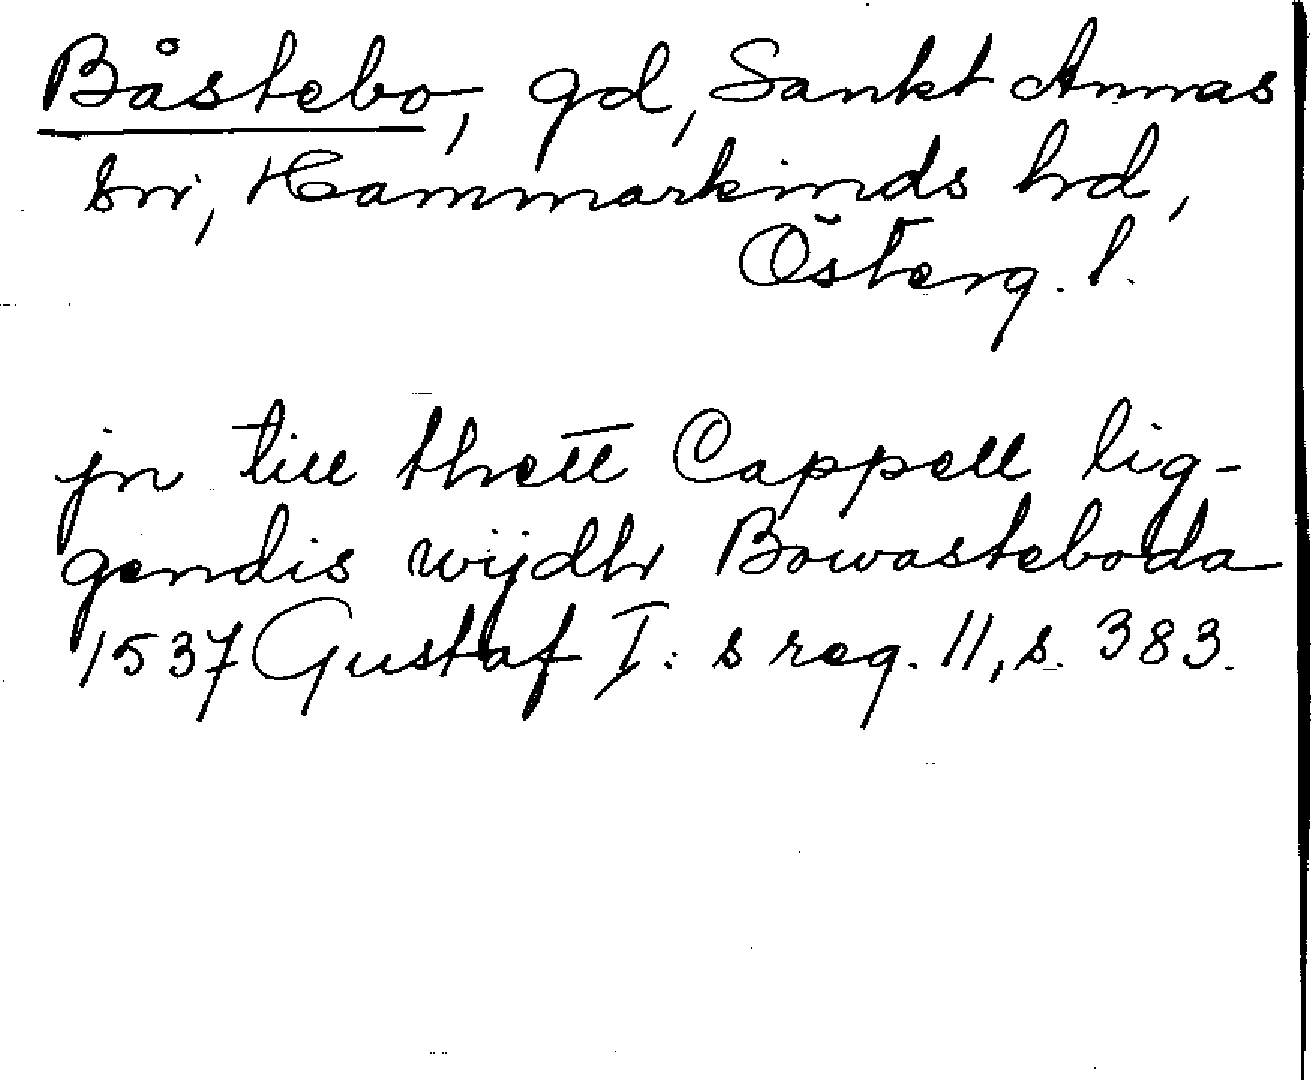 Båstebo, gd, Sankt Annas
sn, Hammarkinds hd,
Österg. l.
jn till thett Cappell lig-
gendis wijdh Bowasteboda
1537 Gustaf I:s reg. 11, s. 383.